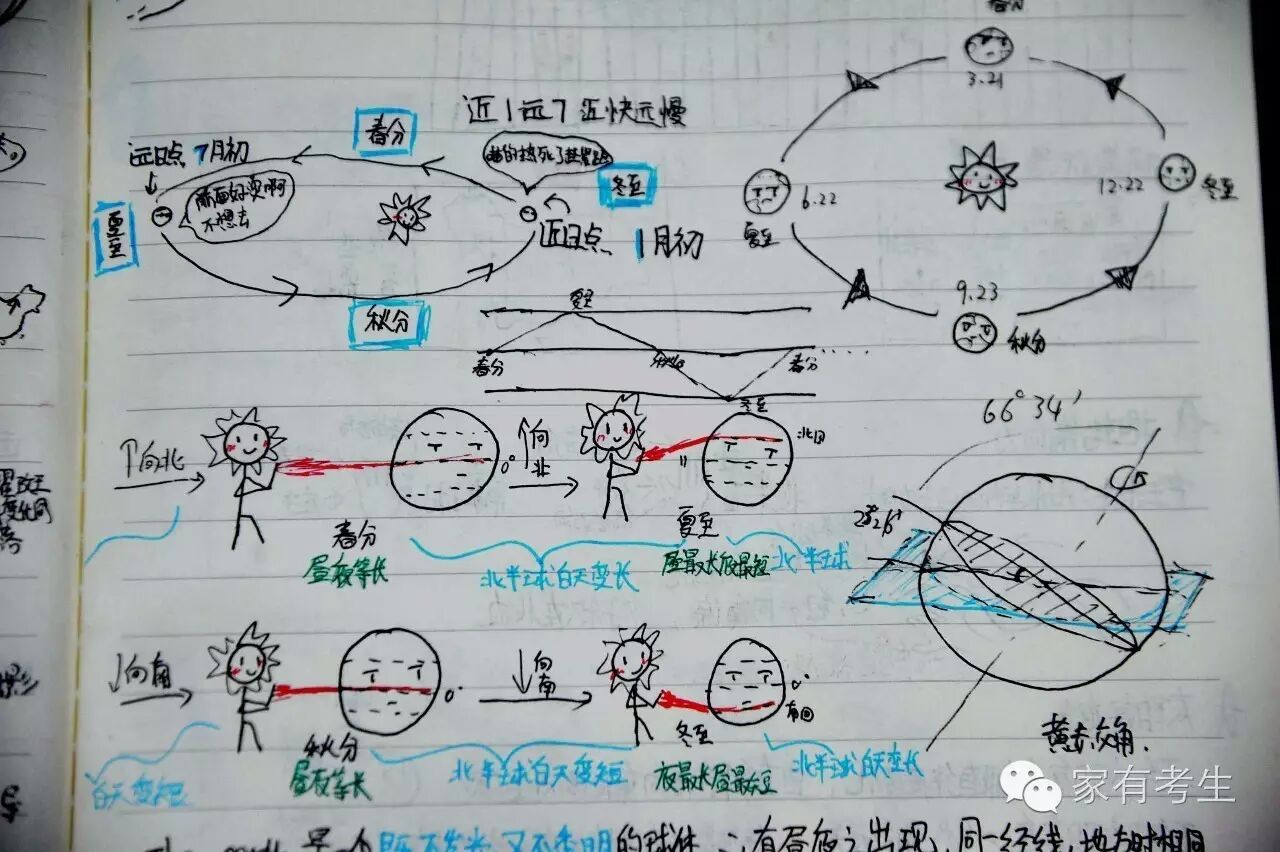 近1远7 近快远慢
春分
远日点 7月初
冬至
夏至
前面好烫啊
不想去
近日点 1月初
秋分
3.21
6.22
夏至
12.22
冬至
9.23
秋分
夏至
春分
秋分
春分
冬至
66°34′
↑向北
0°
↑向北
北回
春分
昼夜等长
北半球白天变长
夏至
昼最长夜最短
北半球
↓向南
0°
↓向南
0°
南回
秋分
昼夜等长
白天变短
北半球白天变短
冬至
夜最长昼最短
北半球白天变长
黄赤交角.
家有考生
是个既不发光又不透明的球体 ∴有昼夜之出现, 同一经线,地方时相同